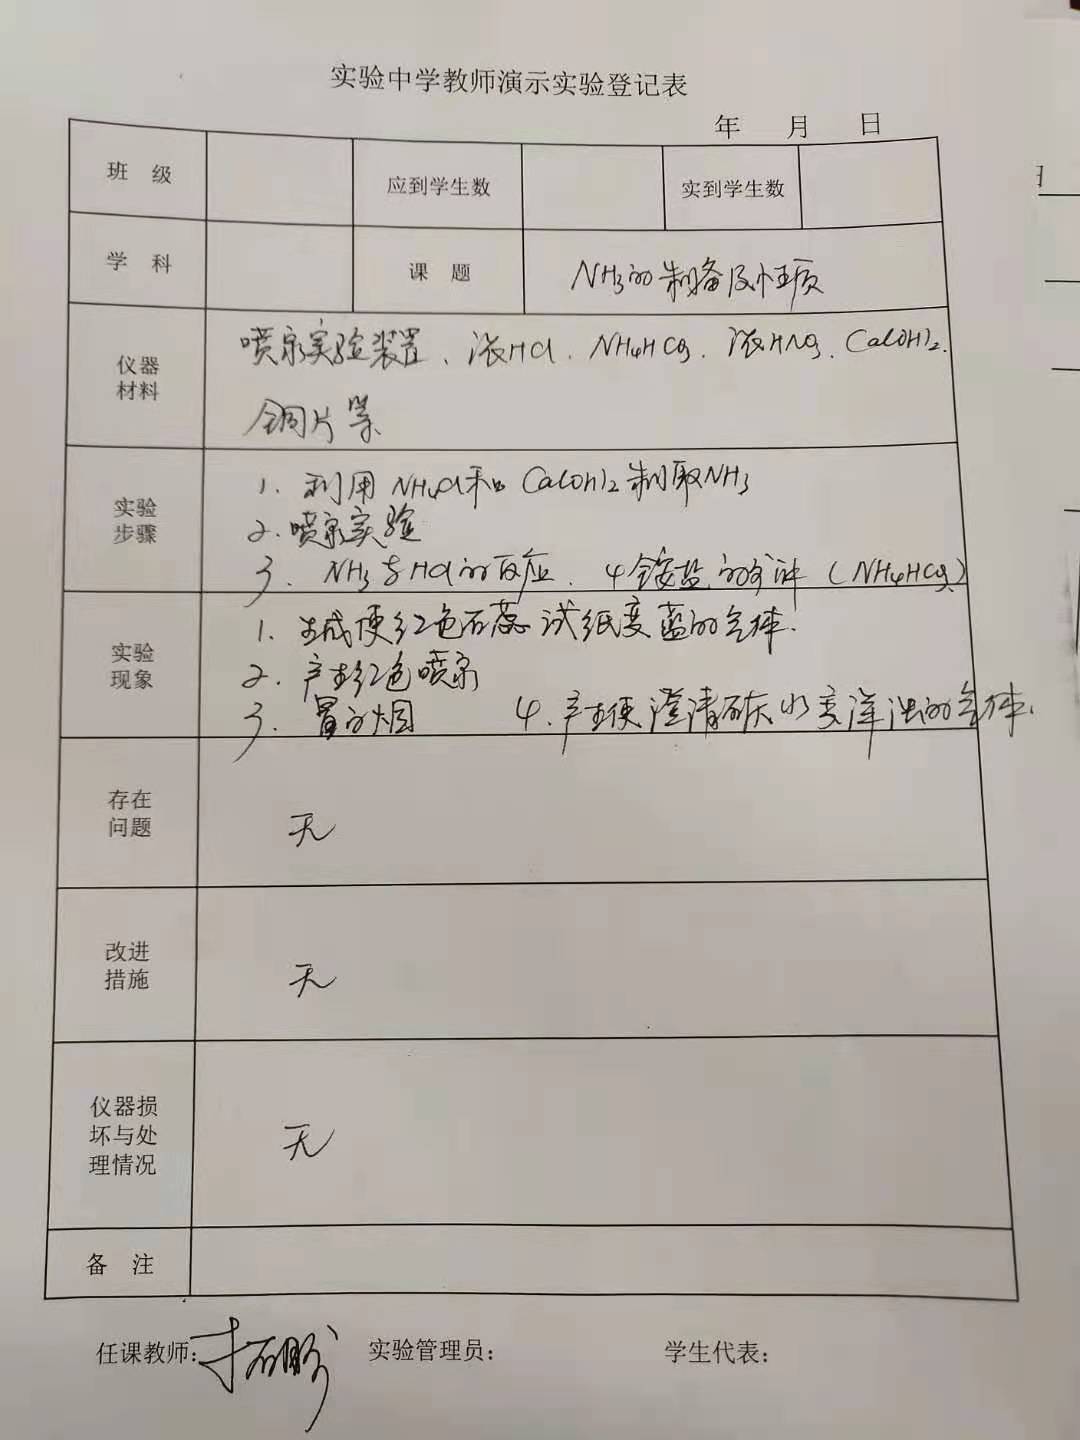 实验中学教师演示实验登记表
年 月 日
班 级 应到学生数 实到学生数
学 科 课 题 NH3的制备及性质
仪器材料 喷泉实验装置、浓HCl、NH4HCO3、浓HNO3、Ca(OH)2、
铜片等
实验步骤 1. 利用NH4Cl和Ca(OH)2制取NH3
2. 喷泉实验
3. NH3与HCl的反应. 4 铵盐的分解 (NH4HCO3)
实验现象 1. 生成使红色石蕊试纸变蓝的气体.
2. 产生红色喷泉
3. 冒白烟 4. 产生使澄清石灰水变浑浊的气体.
存在问题 无
改进措施 无
仪器损坏与处理情况 无
备 注
任课教师: 实验管理员: 学生代表: